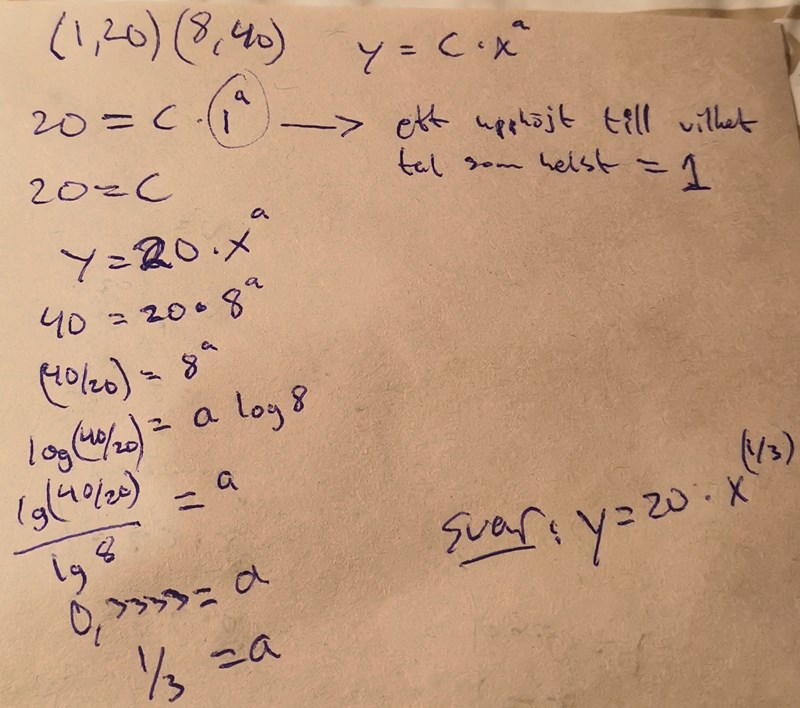 (1,20) (8,40) y = C · x^a
20 = C · 1^a → ett upphöjt till vilket
tal som helst = 1
20 = C
y = 20 · x^a
40 = 20 · 8^a
(40/20) = 8^a
log(40/20) = a log 8
lg(40/20) / lg 8 = a
0,3333 = a
1/3 = a
Svar: y = 20 · x^(1/3)